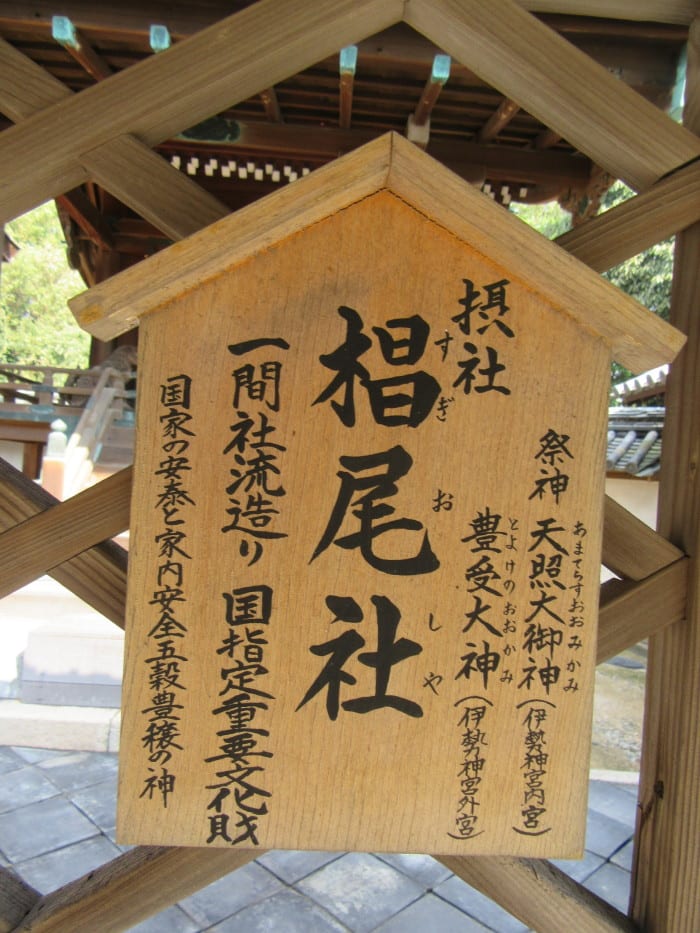 祭神 天照大御神(伊勢神宮内宮)
あまてらすおおみかみ
摂社
豊受大神(伊勢神宮外宮)
とよけのおおかみ
椙尾社
すぎおしや
一間社流造り 国指定重要文化財
国家の安泰と家内安全五穀豊穣の神